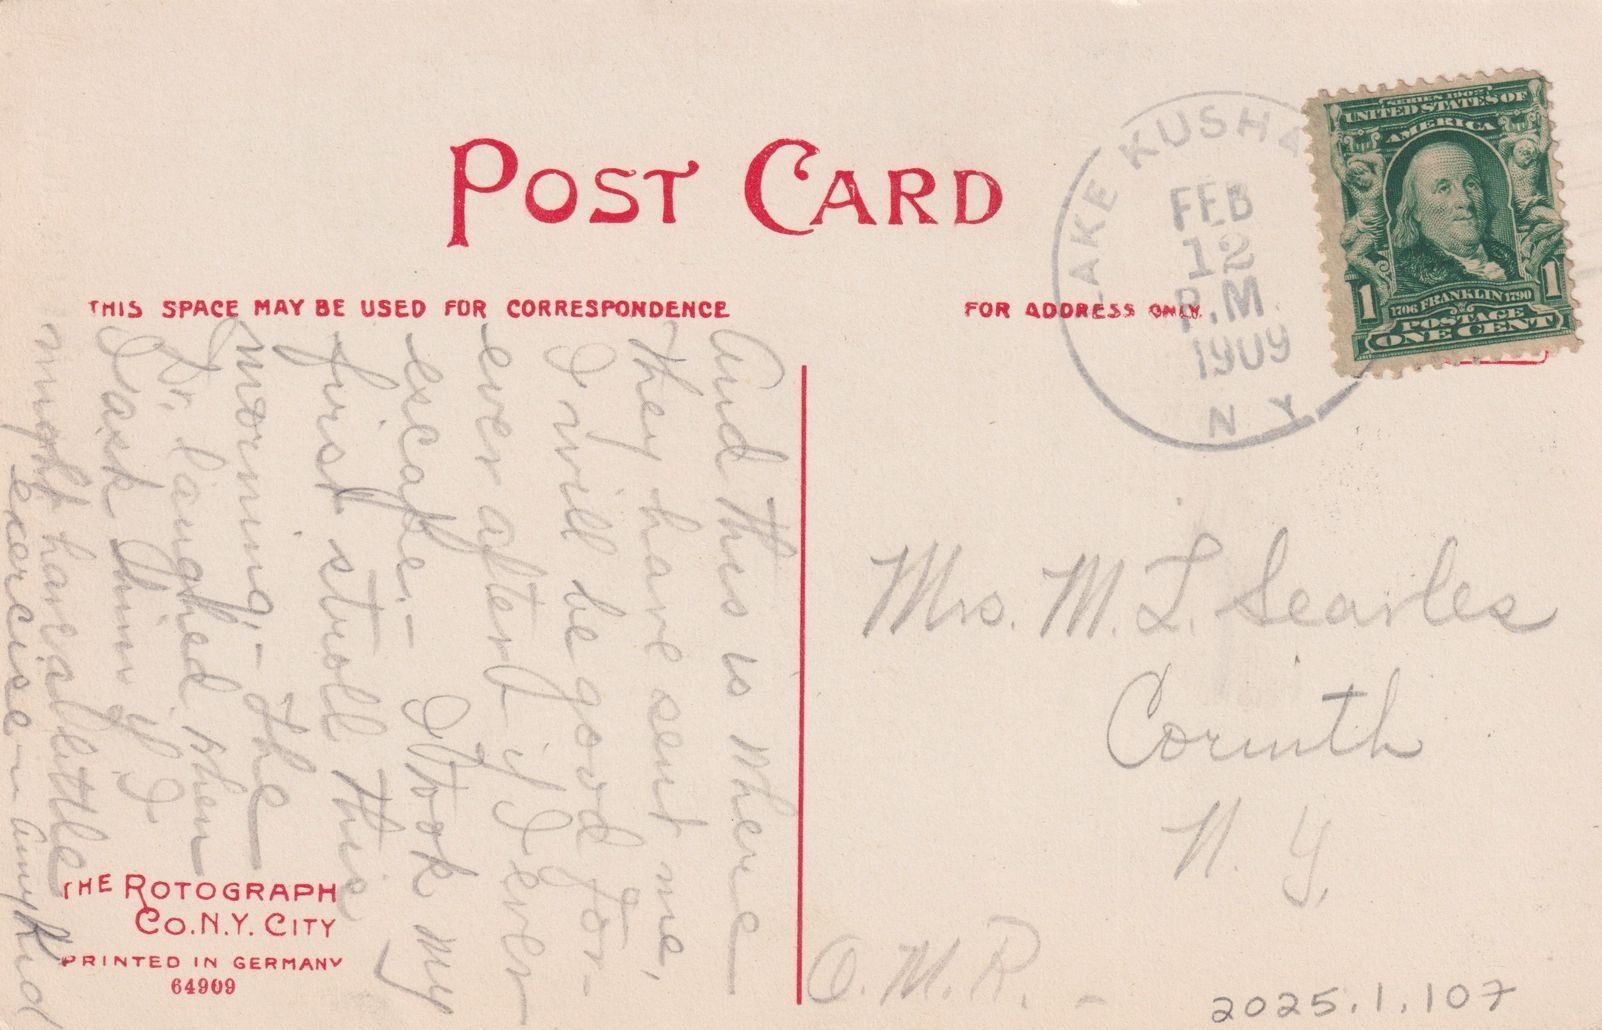 POST CARD
THIS SPACE MAY BE USED FOR CORRESPONDENCE
FOR ADDRESS ONLY
LAKE KUSHA
FEB
12
P.M.
1909
N Y
SERIES 1902
UNITED STATES OF
AMERICA
1706 FRANKLIN 1790
1 1
POSTAGE
ONE CENT
And this is where
they have sent me,
I will be good for-
ever afterd if I ever
escape. - I took my
first stroll this
morning, - the
Dr. laughed when
I ask him if I
might have a little
exercise - any kind
Mrs. M. L. Searles
Corinth
N. Y.
O. M. R. -
THE ROTOGRAPH
CO. N.Y. CITY
PRINTED IN GERMANY
64909
2025.1.107